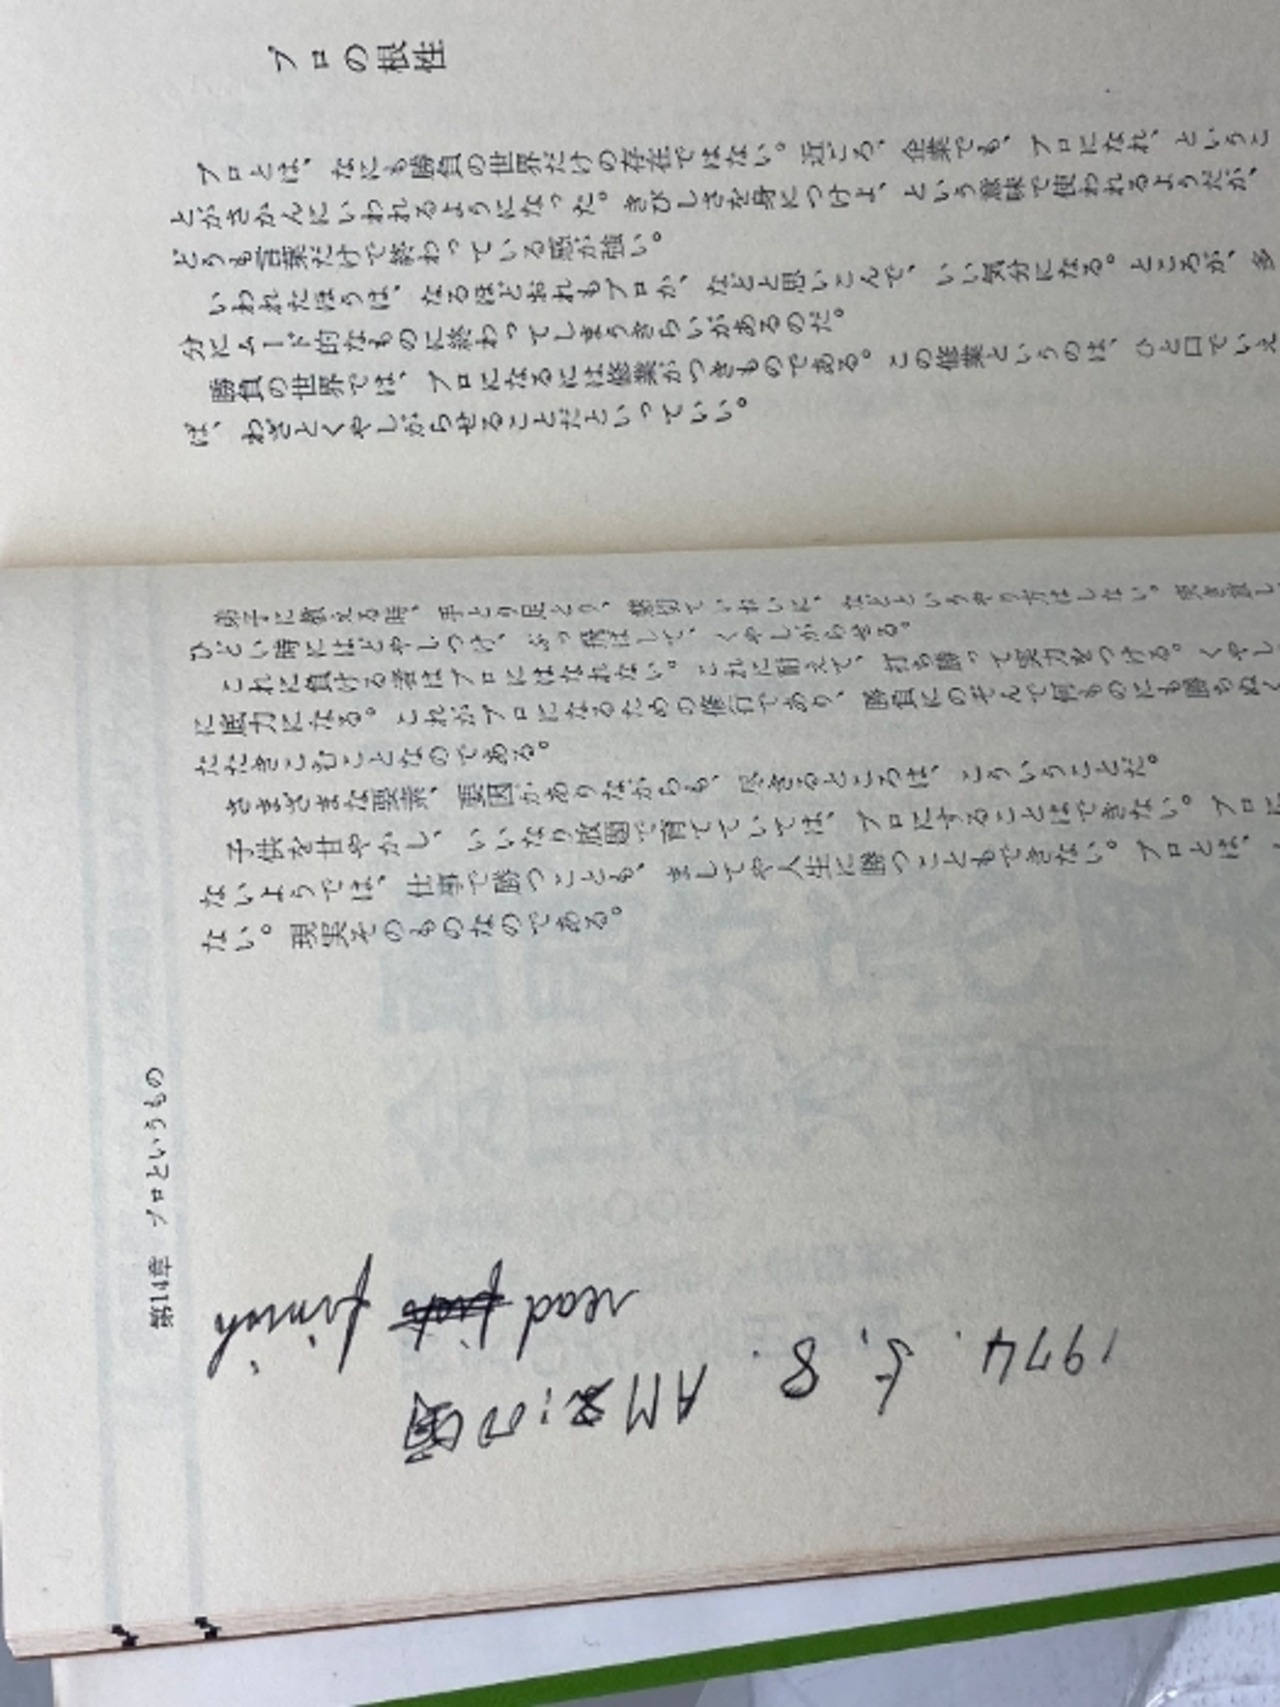 プロの根性
プロとは、なにも勝負の世界だけの存在ではない。近ごろ、企業でも、プロになれ、というこ
とがさかんにいわれるようになった。きびしさを身につけよ、という意味で使われるようだが、
どうも言葉だけで終わっている感が強い。
いわれたほうは、なるほどおれもプロか、などと思いこんで、いい気分になる。ところが、多
分にムード的なものに終わってしまうきらいがあるのだ。
勝負の世界では、プロになるには修業がつきものである。この修業というのは、ひと口でいえ
ば、わざとくやしがらせることだといっていい。
弟子に教える時、手とり足とり、懇切ていねいに、などというやり方はしない。突き放し
ひどい時にはどやしつけ、ぶっ飛ばして、くやしがらせる。
これに負ける者はプロにはなれない。これに耐えて、打ち勝って実力をつける。くやし
に底力になる。これがプロになるための修行であり、勝負にのぞんで何ものにも勝ちぬく
たたきこむことなのである。
さまざまな要素、要因がありながらも、尽きるところは、こういうことだ。
子供を甘やかし、いいなり放題で育てていては、プロにすることはできない。プロに
ないようでは、仕事で勝つことも、ましてや人生に勝つこともできない。プロとは、
ない。現実そのものなのである。
第14章 プロというもの
1974. 5. 8.
AM
read finish